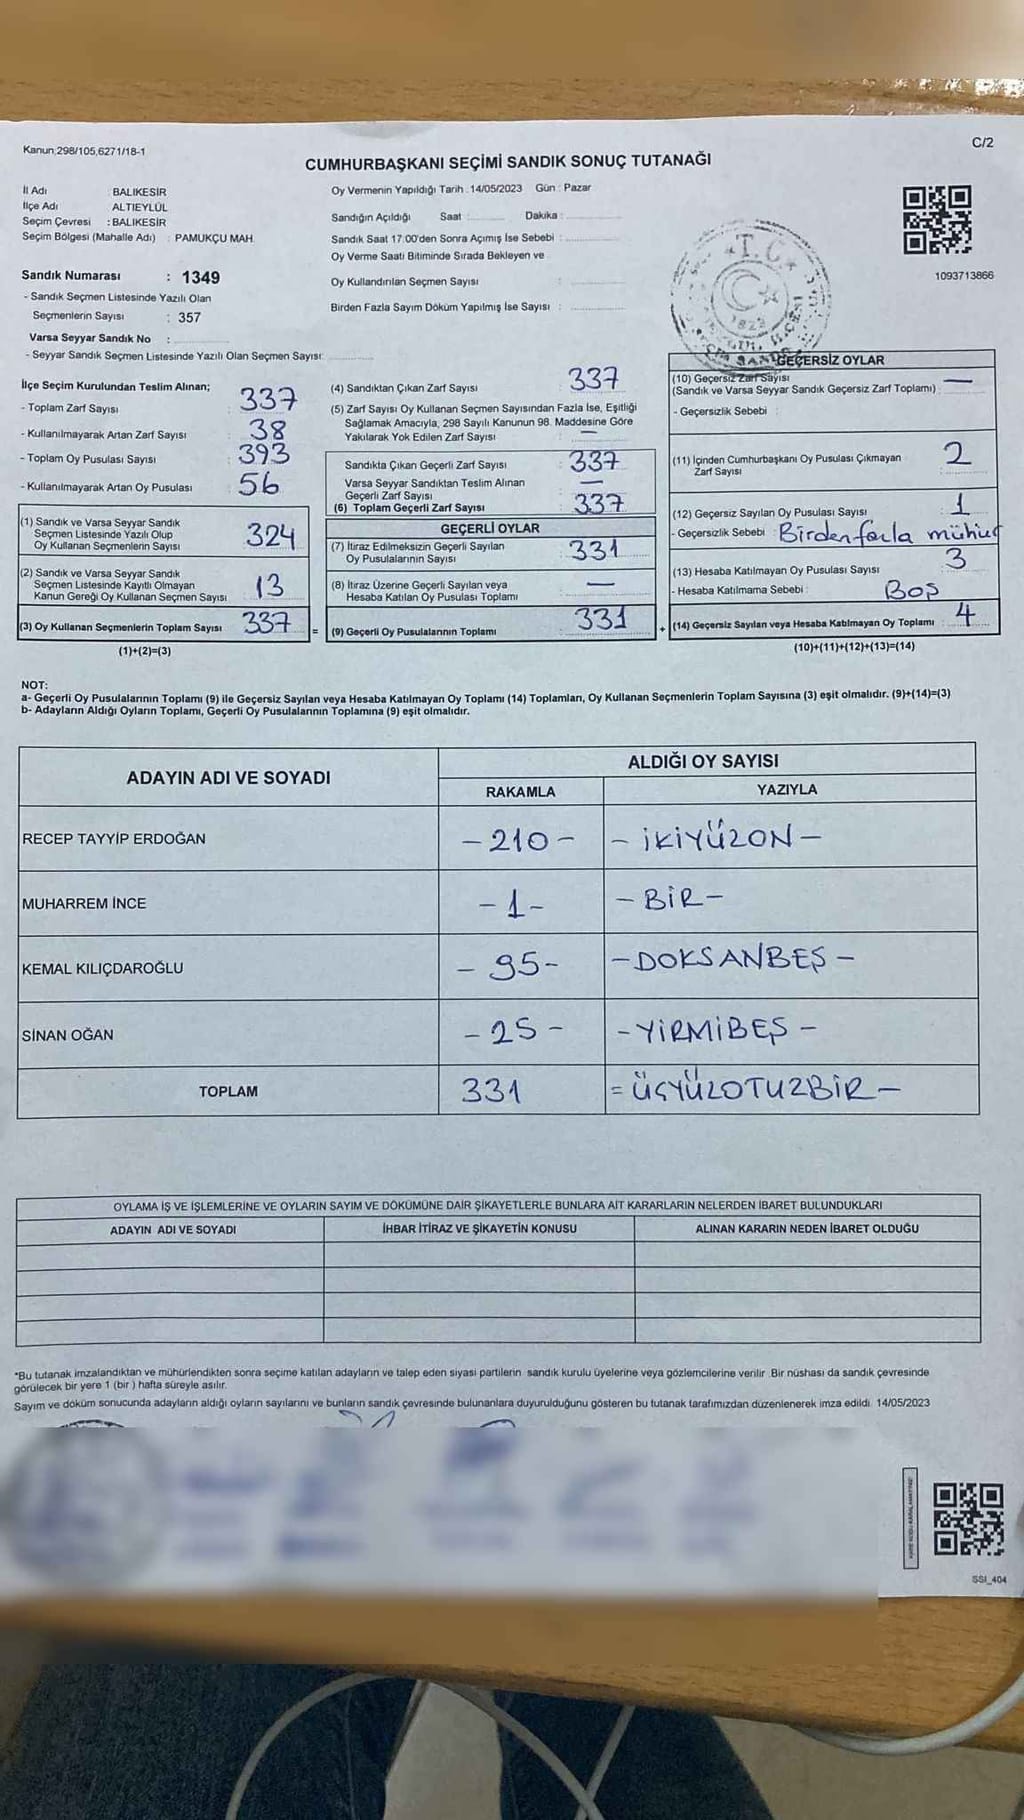 Kanun;298/105,6271/18-1
C/2
CUMHURBAŞKANI SEÇİMİ SANDIK SONUÇ TUTANAĞI
İl Adı : BALIKESİR
İlçe Adı : ALTIEYLÜL
Seçim Çevresi : BALIKESİR
Seçim Bölgesi (Mahalle Adı) : PAMUKÇU MAH.
Sandık Numarası : 1349
- Sandık Seçmen Listesinde Yazılı Olan
Seçmenlerin Sayısı : 357
Varsa Seyyar Sandık No :
- Seyyar Sandık Seçmen Listesinde Yazılı Olan Seçmen Sayısı:
Oy Vermenin Yapıldığı Tarih : 14/05/2023 Gün : Pazar
Sandığın Açıldığı Saat : Dakika :
Sandık Saat 17:00'den Sonra Açımış İse Sebebi :
Oy Verme Saati Bitiminde Sırada Bekleyen ve
Oy Kullandırılan Seçmen Sayısı :
Birden Fazla Sayım Döküm Yapılmış İse Sayısı :
T.C.
1093713866
İlçe Seçim Kurulundan Teslim Alınan;
- Toplam Zarf Sayısı : 337
- Kullanılmayarak Artan Zarf Sayısı : 38
- Toplam Oy Pusulası Sayısı : 393
- Kullanılmayarak Artan Oy Pusulası : 56
(1) Sandık ve Varsa Seyyar Sandık
Seçmen Listesinde Yazılı Olup
Oy Kullanan Seçmenlerin Sayısı : 324
(2) Sandık ve Varsa Seyyar Sandık
Seçmen Listesinde Kayıtlı Olmayan
Kanun Gereği Oy Kullanan Seçmen Sayısı : 13
(3) Oy Kullanan Seçmenlerin Toplam Sayısı : 337 =
(1)+(2)=(3)
(4) Sandıktan Çıkan Zarf Sayısı : 337
(5) Zarf Sayısı Oy Kullanan Seçmen Sayısından Fazla İse, Eşitliği
Sağlamak Amacıyla, 298 Sayılı Kanunun 98. Maddesine Göre
Yakılarak Yok Edilen Zarf Sayısı : —
Sandıkta Çıkan Geçerli Zarf Sayısı : 337
Varsa Seyyar Sandıktan Teslim Alınan
Geçerli Zarf Sayısı : —
(6) Toplam Geçerli Zarf Sayısı : 337
GEÇERLİ OYLAR
(7) İtiraz Edilmeksizin Geçerli Sayılan
Oy Pusulalarının Sayısı : 331
(8) İtiraz Üzerine Geçerli Sayılan veya
Hesaba Katılan Oy Pusulası Toplamı : —
(9) Geçerli Oy Pusulalarının Toplamı : 331 +
GEÇERSİZ OYLAR
(10) Geçersiz Zarf Sayısı
(Sandık ve Varsa Seyyar Sandık Geçersiz Zarf Toplamı) : —
- Geçersizlik Sebebi :
(11) İçinden Cumhurbaşkanı Oy Pusulası Çıkmayan
Zarf Sayısı : 2
(12) Geçersiz Sayılan Oy Pusulası Sayısı : 1
- Geçersizlik Sebebi : Birden fazla mühür
(13) Hesaba Katılmayan Oy Pusulası Sayısı : 3
- Hesaba Katılmama Sebebi : Boş
(14) Geçersiz Sayılan veya Hesaba Katılmayan Oy Toplamı : 4
(10)+(11)+(12)+(13)=(14)
NOT:
a- Geçerli Oy Pusulalarının Toplamı (9) ile Geçersiz Sayılan veya Hesaba Katılmayan Oy Toplamı (14) Toplamları, Oy Kullanan Seçmenlerin Toplam Sayısına (3) eşit olmalıdır. (9)+(14)=(3)
b- Adayların Aldığı Oyların Toplamı, Geçerli Oy Pusulalarının Toplamına (9) eşit olmalıdır.
ADAYIN ADI VE SOYADI
ALDIĞI OY SAYISI
RAKAMLA YAZIYLA
RECEP TAYYİP ERDOĞAN - 210 - - İKİYÜZON -
MUHARREM İNCE - 1 - - BİR -
KEMAL KILIÇDAROĞLU - 95 - - DOKSANBEŞ -
SİNAN OĞAN - 25 - - YİRMİBEŞ -
TOPLAM 331 = ÜÇYÜZOTUZBİR -
OYLAMA İŞ VE İŞLEMLERİNE VE OYLARIN SAYIM VE DÖKÜMÜNE DAİR ŞİKAYETLERLE BUNLARA AİT KARARLARIN NELERDEN İBARET BULUNDUKLARI
ADAYIN ADI VE SOYADI İHBAR İTİRAZ VE ŞİKAYETİN KONUSU ALINAN KARARIN NEDEN İBARET OLDUĞU
*Bu tutanak imzalandıktan ve mühürlendikten sonra seçime katılan adayların ve talep eden siyasi partilerin sandık kurulu üyelerine veya gözlemcilerine verilir. Bir nüshası da sandık çevresinde
görülecek bir yere 1 (bir ) hafta süreyle asılır.
Sayım ve döküm sonucunda adayların aldığı oyların sayılarını ve bunların sandık çevresinde bulunanlara duyurulduğunu gösteren bu tutanak tarafımızdan düzenlenerek imza edildi. 14/05/2023
SSI_404